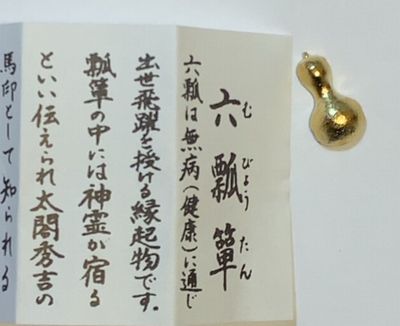 六瓢箪
むびょうたん
六瓢は無病(健康)に通じ
出世飛躍を授ける縁起物です。
瓢箪の中には神霊が宿る
といい伝えられ太閤秀吉の
馬印として知られる